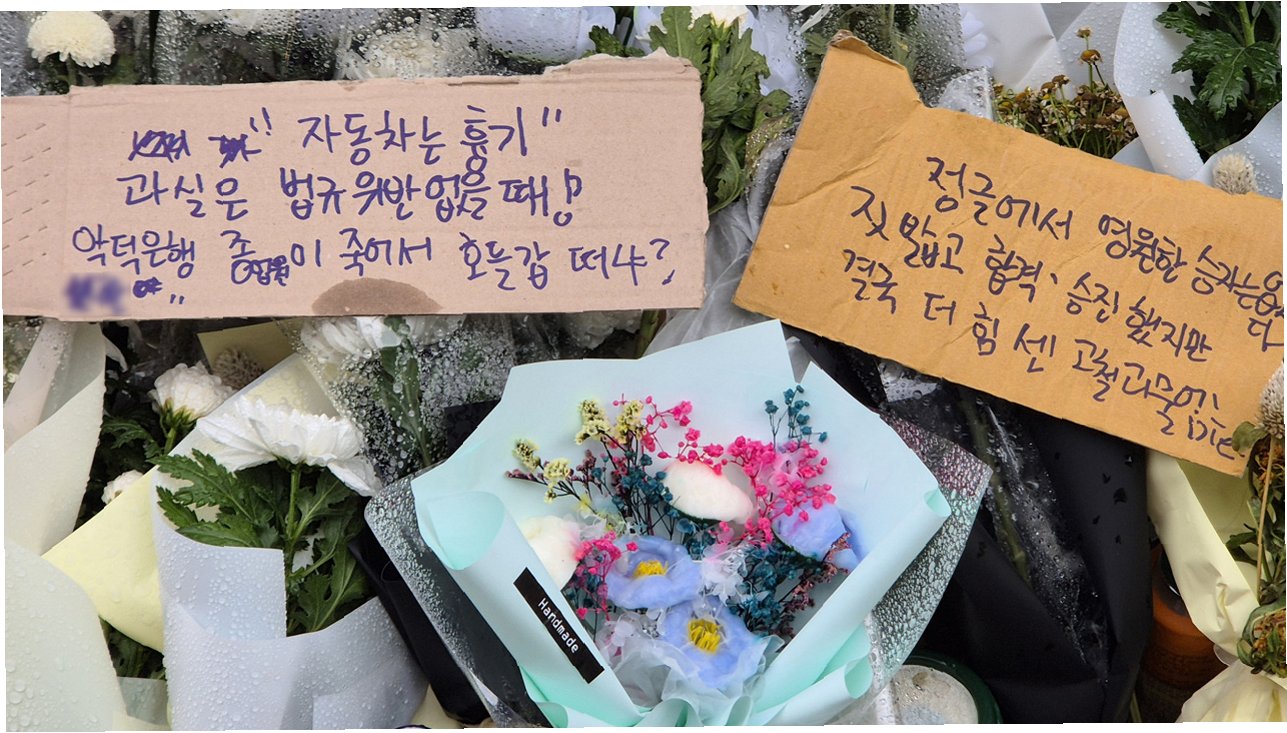 "자동차는 흉기"
과실은 법규위반 없을 때!
악덕은행 종업원이 죽어서 호들갑 떠냐?
정글에서 영원한 승자는 없다
짓밟고 합격, 승진했지만
결국 더 힘 센 고철과물에
Handmade